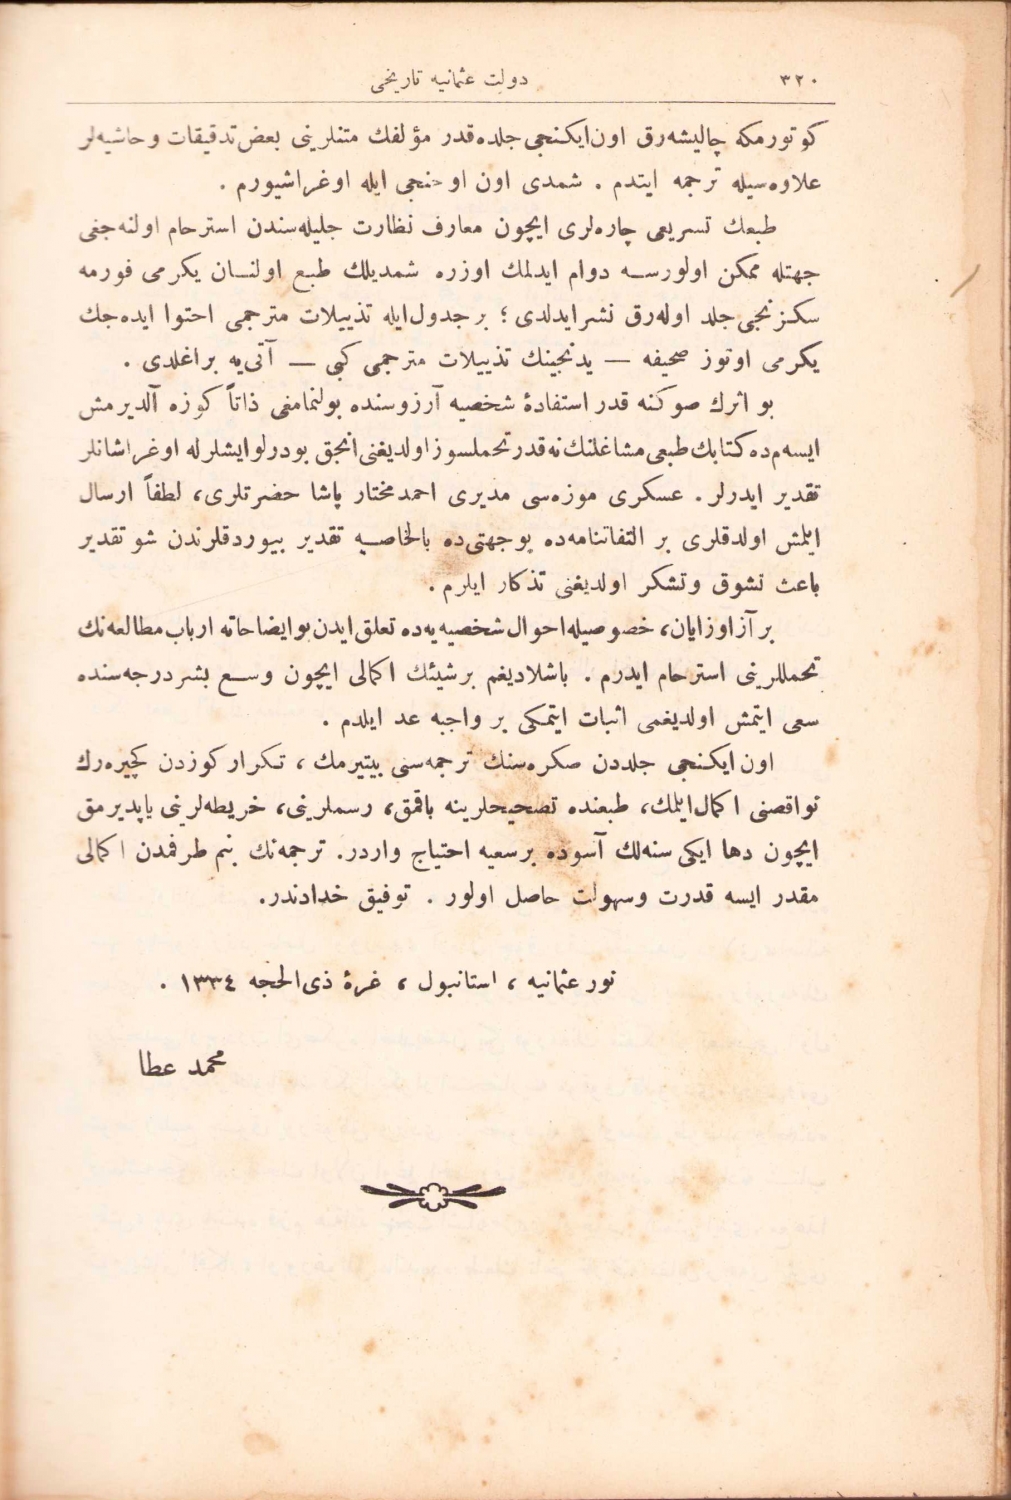 ٣٢٠
دولت عثمانیه تاریخی
كوتورمكه چالیشه‌رق اون ایكنجی جلده قدر مؤلفك متنلرینی بعض تدقیقات و حاشیه‌لر
علاوه‌سیله ترجمه ایتدم . شمدی اون اوچنجی ایله اوغراشیورم .
طبعك تسریعی چاره‌لری ایچون معارف نظارت جلیله‌سندن استرحام اولنه‌جغی
جهتله ممكن اولورسه دوام ایدلمك اوزره شمدیلك طبع اولنان یكرمی فورمه
سكزنجی جلد اوله‌رق نشر ایدلدی ؛ بر جدول ایله تذییلات مترجمی احتوا ایده‌جك
یكرمی اوتوز صحیفه — یدنجینك تذییلات مترجمی كبی — آتی‌یه براغلدی .
بو اثرك صوكنه قدر استفادهٔ شخصیه آرزوسنده بولنمامغی ذاتاً كوزه آلدیرمش
ایسه‌م ده كتابك طبعی مشاغلنك نه قدر تحملسوز اولدیغنی انجق بودرلو ایشلرله اوغراشانلر
تقدیر ایدرلر . عسكری موزه‌سی مدیری احمد مختار پاشا حضرتلری، لطفاً ارسال
ایلمش اولدقلری بر التفاتنامه‌ده بوجهتی ده بالخاصه تقدیر بیوردقلرندن شو تقدیر
باعث تشوق وتشكر اولدیغنی تذكار ایلرم .
بر آز اوزایان، خصوصیله احوال شخصیه‌یه ده تعلق ایدن بو ایضاحاته ارباب مطالعه‌نك
تحمللرینی استرحام ایدرم . باشلادیغم برشیئك اكمالی ایچون وسع بشر درجه‌سنده
سعی ایتمش اولدیغمی اثبات ایتمكی بر واجبه عد ایلدم .
اون ایكنجی جلددن صكره‌سنك ترجمه‌سنی بیتیرمك ، تكرار كوزدن كچیره‌رك
نواقصنی اكمال ایلمك، طبعنده تصحیحلرینه باقمق، رسملرینی، خریطه‌لرینی یاپدیرمق
ایچون دها ایكی سنه‌لك آسوده برسعیه احتیاج واردر. ترجمه‌نك بنم طرفمدن اكمالی
مقدر ایسه قدرت وسهولت حاصل اولور . توفیق خدادندر.
نور عثمانیه ، استانبول ، غرهٔ ذی‌الحجه ١٣٣٤ .
محمد عطا